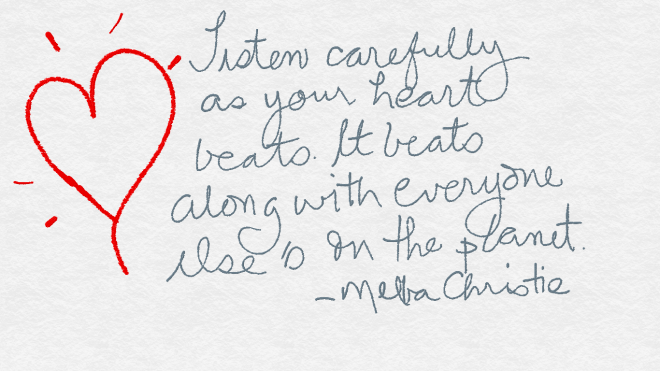 Listen carefully
as your heart
beats. It beats
along with everyone
else's on the planet.
- Melba Christie